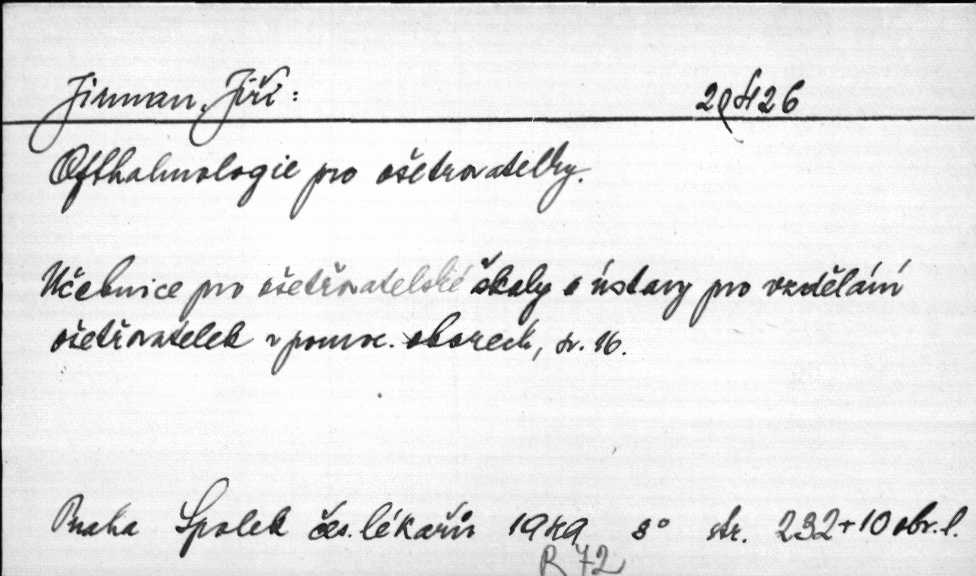 Jirman, Jiří:
Ofthalmologie pro ošetrovatelky.
Učebnice pro ošetřovatelské školy a ústavy pro vzdělání
ošetřovatelek v pomoc. oborech, sv. 16.
Praha Spolek čes. lékařův 1949 8° str. 232+10 obr. l.
R 72